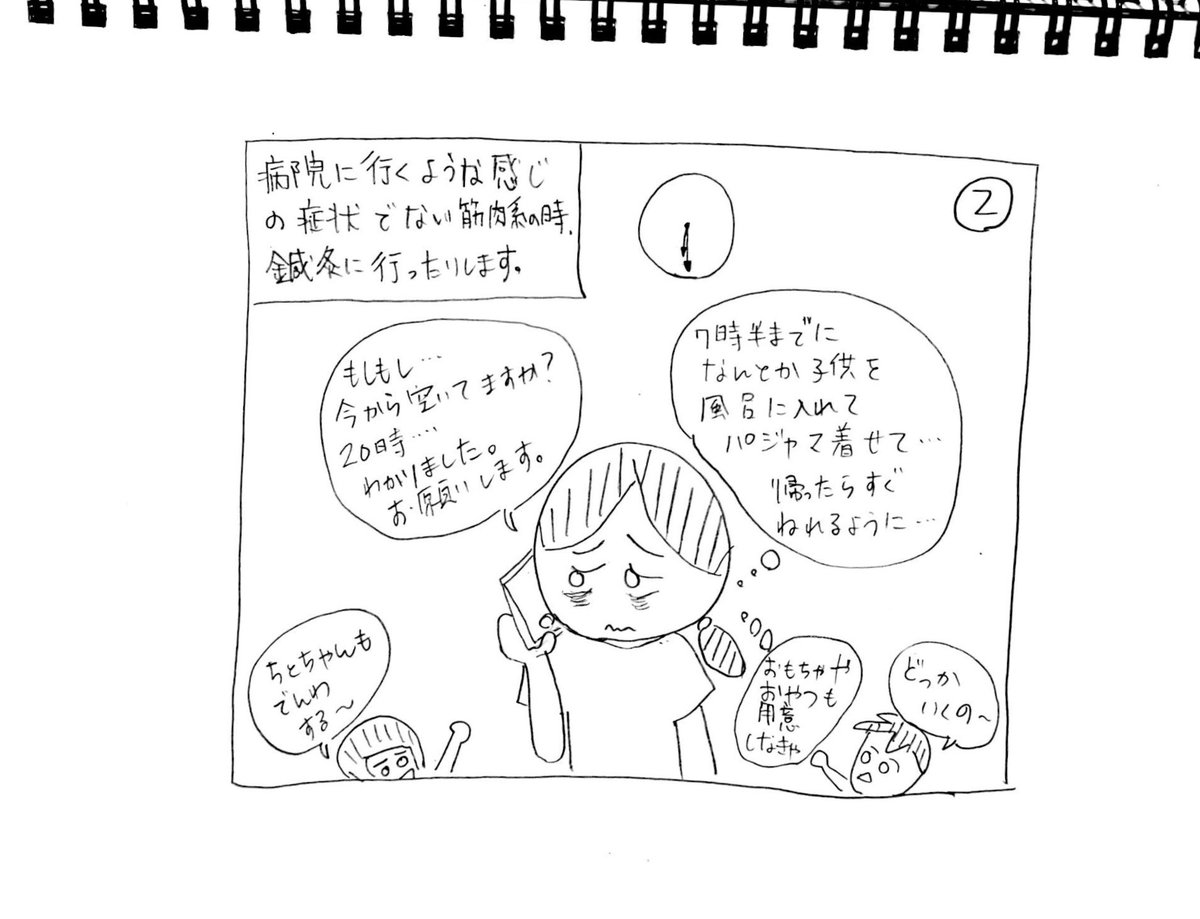 病院に行くような感じ
の症状でない筋肉系の時、
鍼灸に行ったりします。
2
もしもし…
今から空いてますか？
20時…
わかりました。
お願いします。
7時半までに
なんとか子供を
風呂に入れて
パジャマ着せて…
帰ったらすぐ
ねれるように…
おもちゃや
おやつも
用意
しなきゃ
ちとちゃんも
でんわ
する〜
どっか
いくの〜